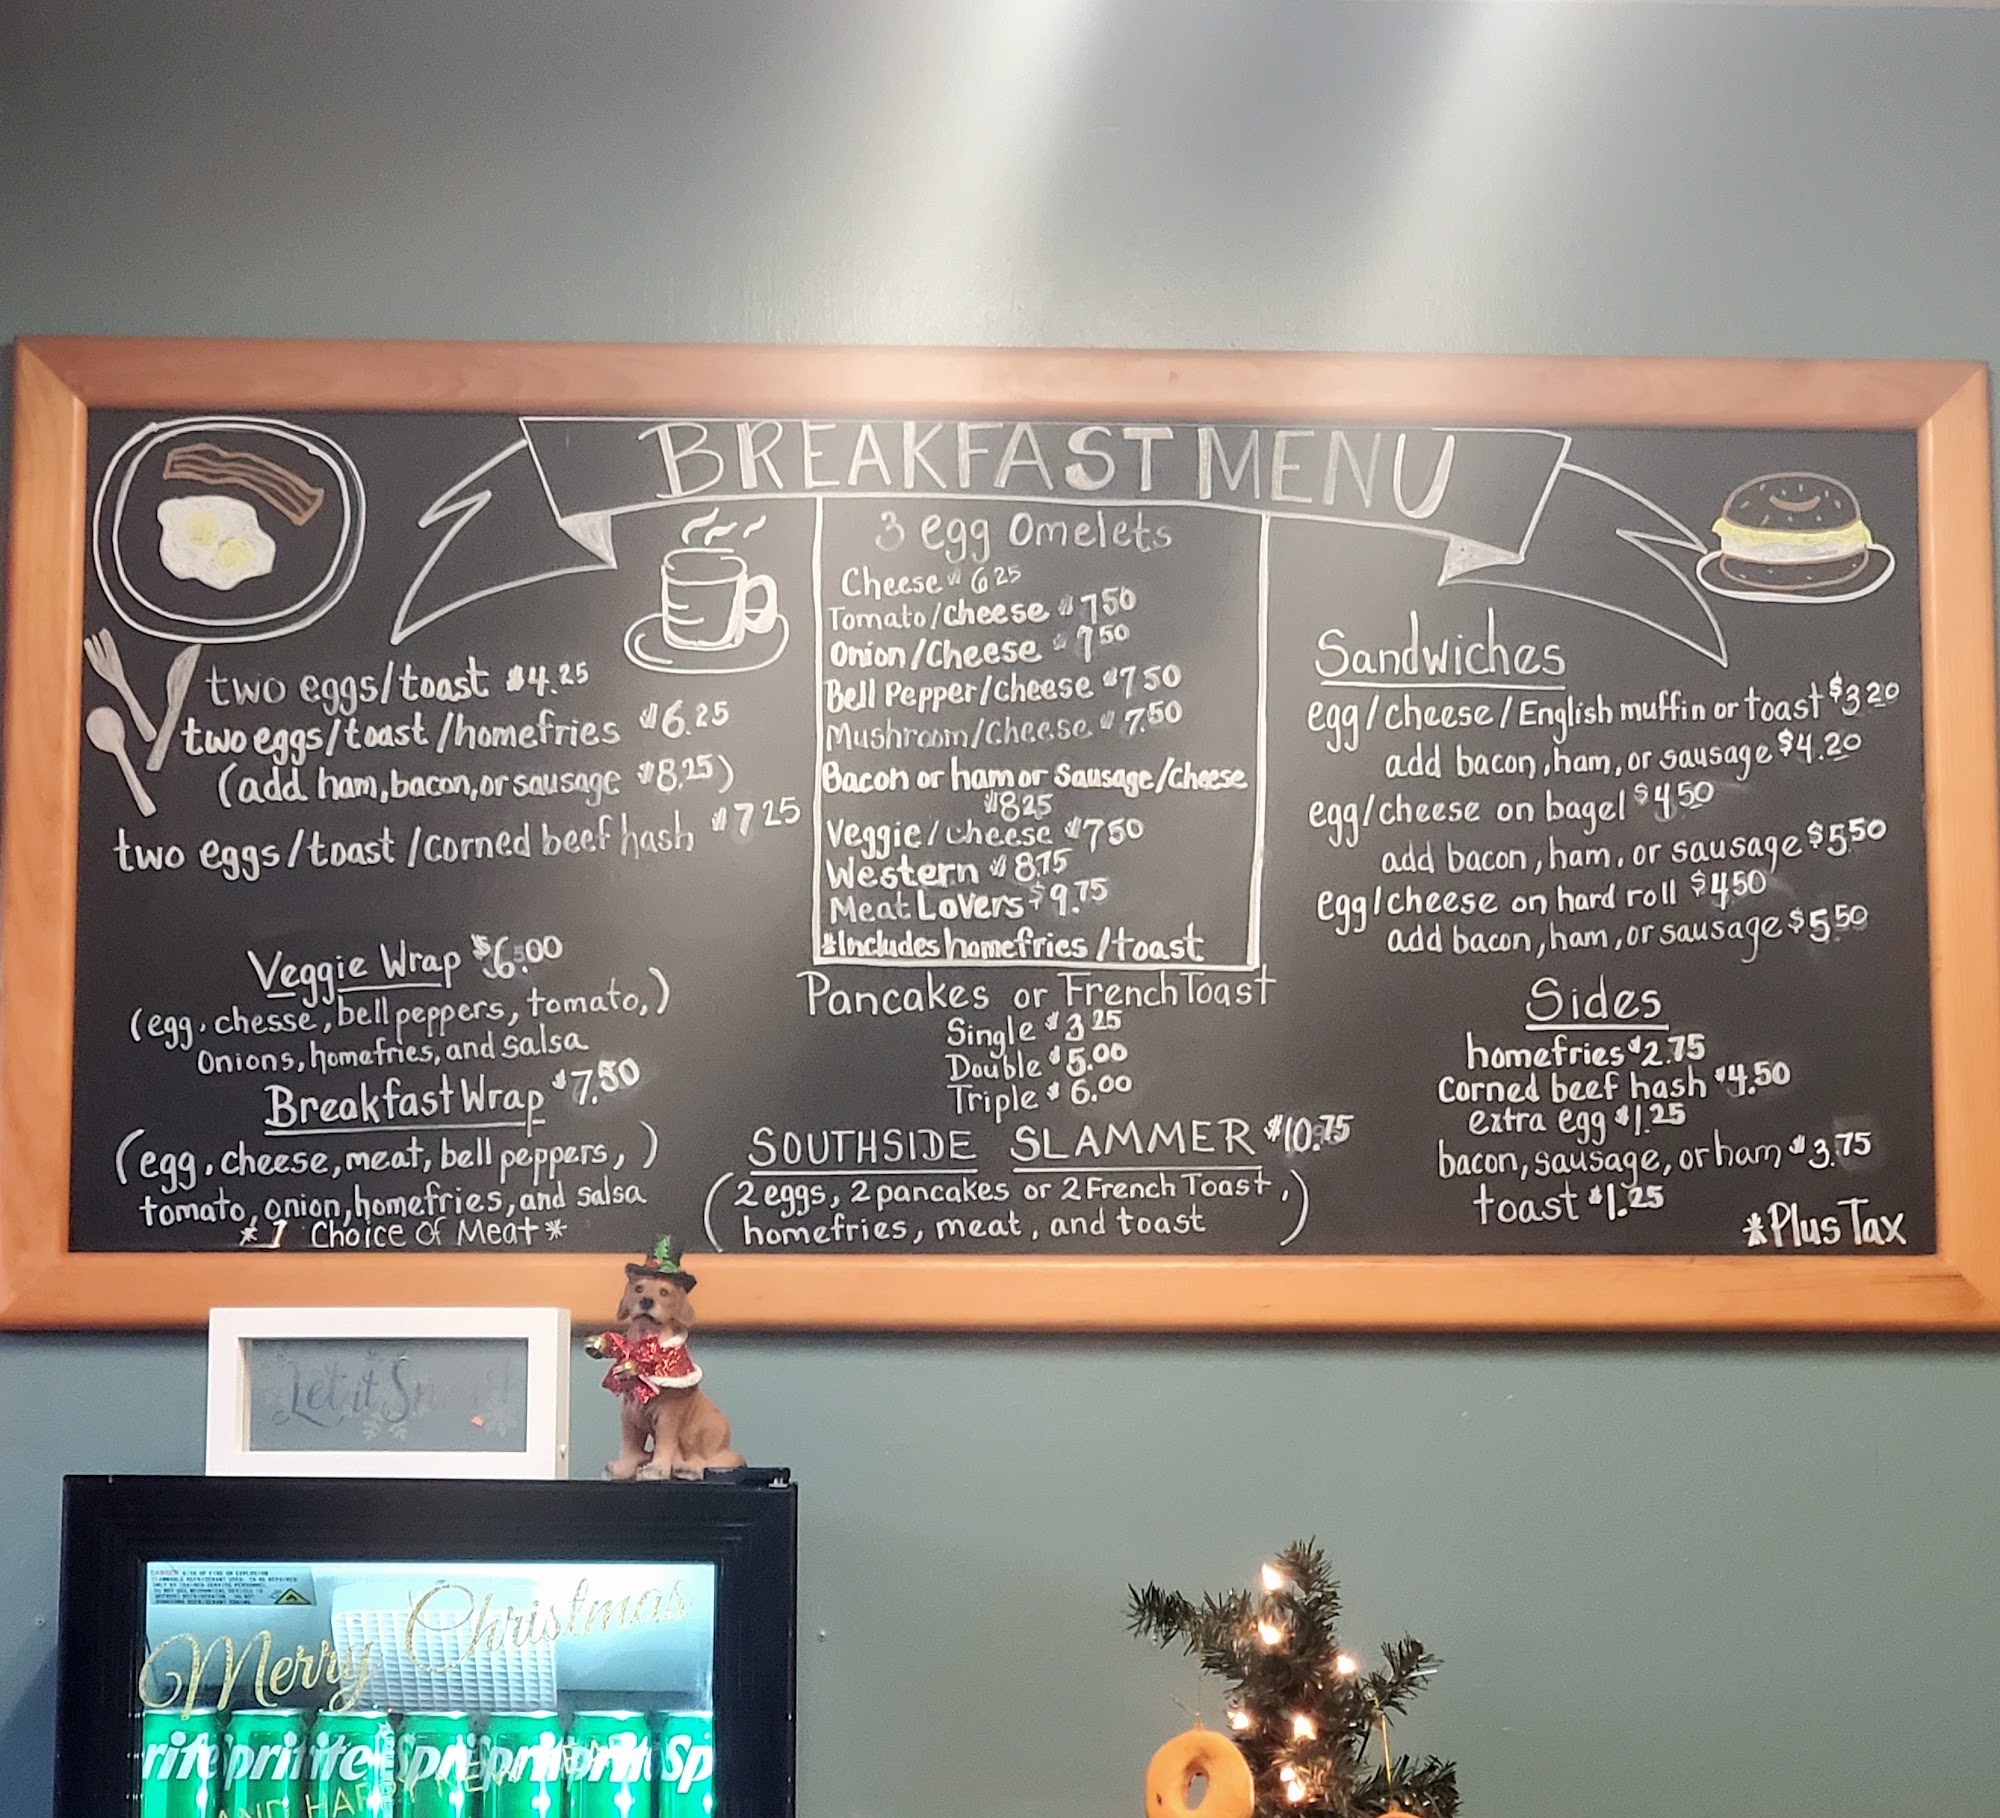 BREAKFAST MENU
two eggs/toast $4.25
two eggs/toast/homefries $6.25
(add ham, bacon, or sausage $8.25)
two eggs/toast/corned beef hash $7.25
Veggie Wrap $6.00
(egg, chesse, bell peppers, tomato,)
onions, homefries, and salsa
Breakfast Wrap $7.50
(egg, cheese, meat, bell peppers,)
tomato, onion, homefries, and salsa
*1 Choice Of Meat*
3 egg Omelets
Cheese $6.25
Tomato/Cheese $7.50
Onion/Cheese $7.50
Bell Pepper/Cheese $7.50
Mushroom/Cheese $7.50
Bacon or ham or Sausage/Cheese
$8.25
Veggie/cheese $7.50
Western $8.75
Meat Lovers $9.75
*Includes homefries/toast
Pancakes or French Toast
Single $3.25
Double $5.00
Triple $6.00
SOUTHSIDE SLAMMER $10.75
(2 eggs, 2 pancakes or 2 French Toast,)
homefries, meat, and toast
Sandwiches
egg/cheese/English muffin or toast $3.20
add bacon, ham, or sausage $4.20
egg/cheese on bagel $4.50
add bacon, ham, or sausage $5.50
egg/cheese on hard roll $4.50
add bacon, ham, or sausage $5.50
Sides
homefries $2.75
Corned beef hash $4.50
extra egg $1.25
bacon, sausage, or ham $3.75
toast $1.25
*Plus Tax
Let it
Merry Christmas
Sprite
AND HAPPY NEW